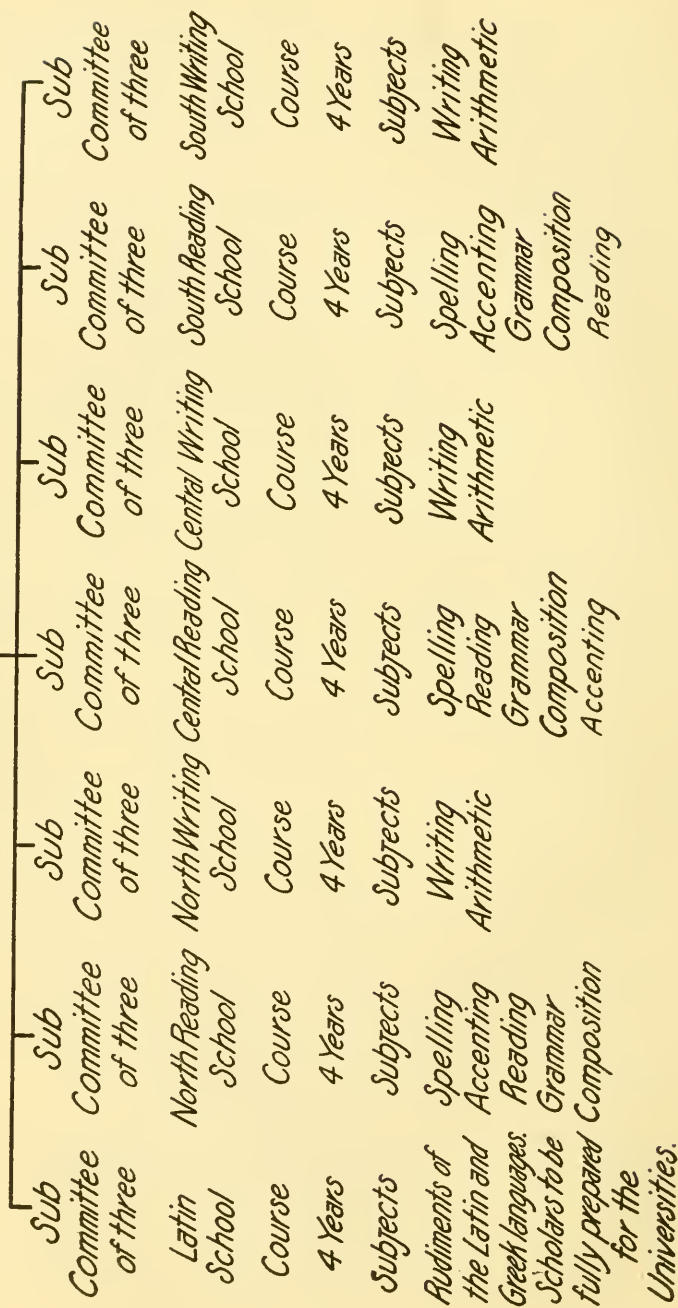 Sub
Committee
of three
Latin
School
Course
4 Years
Subjects
Rudiments of
the Latin and
Greek languages.
Scholars to be
fully prepared
for the
Universities.
Sub
Committee
of three
North Reading
School
Course
4 Years
Subjects
Spelling
Accenting
Reading
Grammar
Composition
Sub
Committee
of three
North Writing
School
Course
4 Years
Subjects
Writing
Arithmetic
Sub
Committee
of three
Central Reading
School
Course
4 Years
Subjects
Spelling
Reading
Grammar
Composition
Accenting
Sub
Committee
of three
Central Writing
School
Course
4 Years
Subjects
Writing
Arithmetic
Sub
Committee
of three
South Reading
School
Course
4 Years
Subjects
Spelling
Accenting
Grammar
Composition
Reading
Sub
Committee
of three
South Writing
School
Course
4 Years
Subjects
Writing
Arithmetic